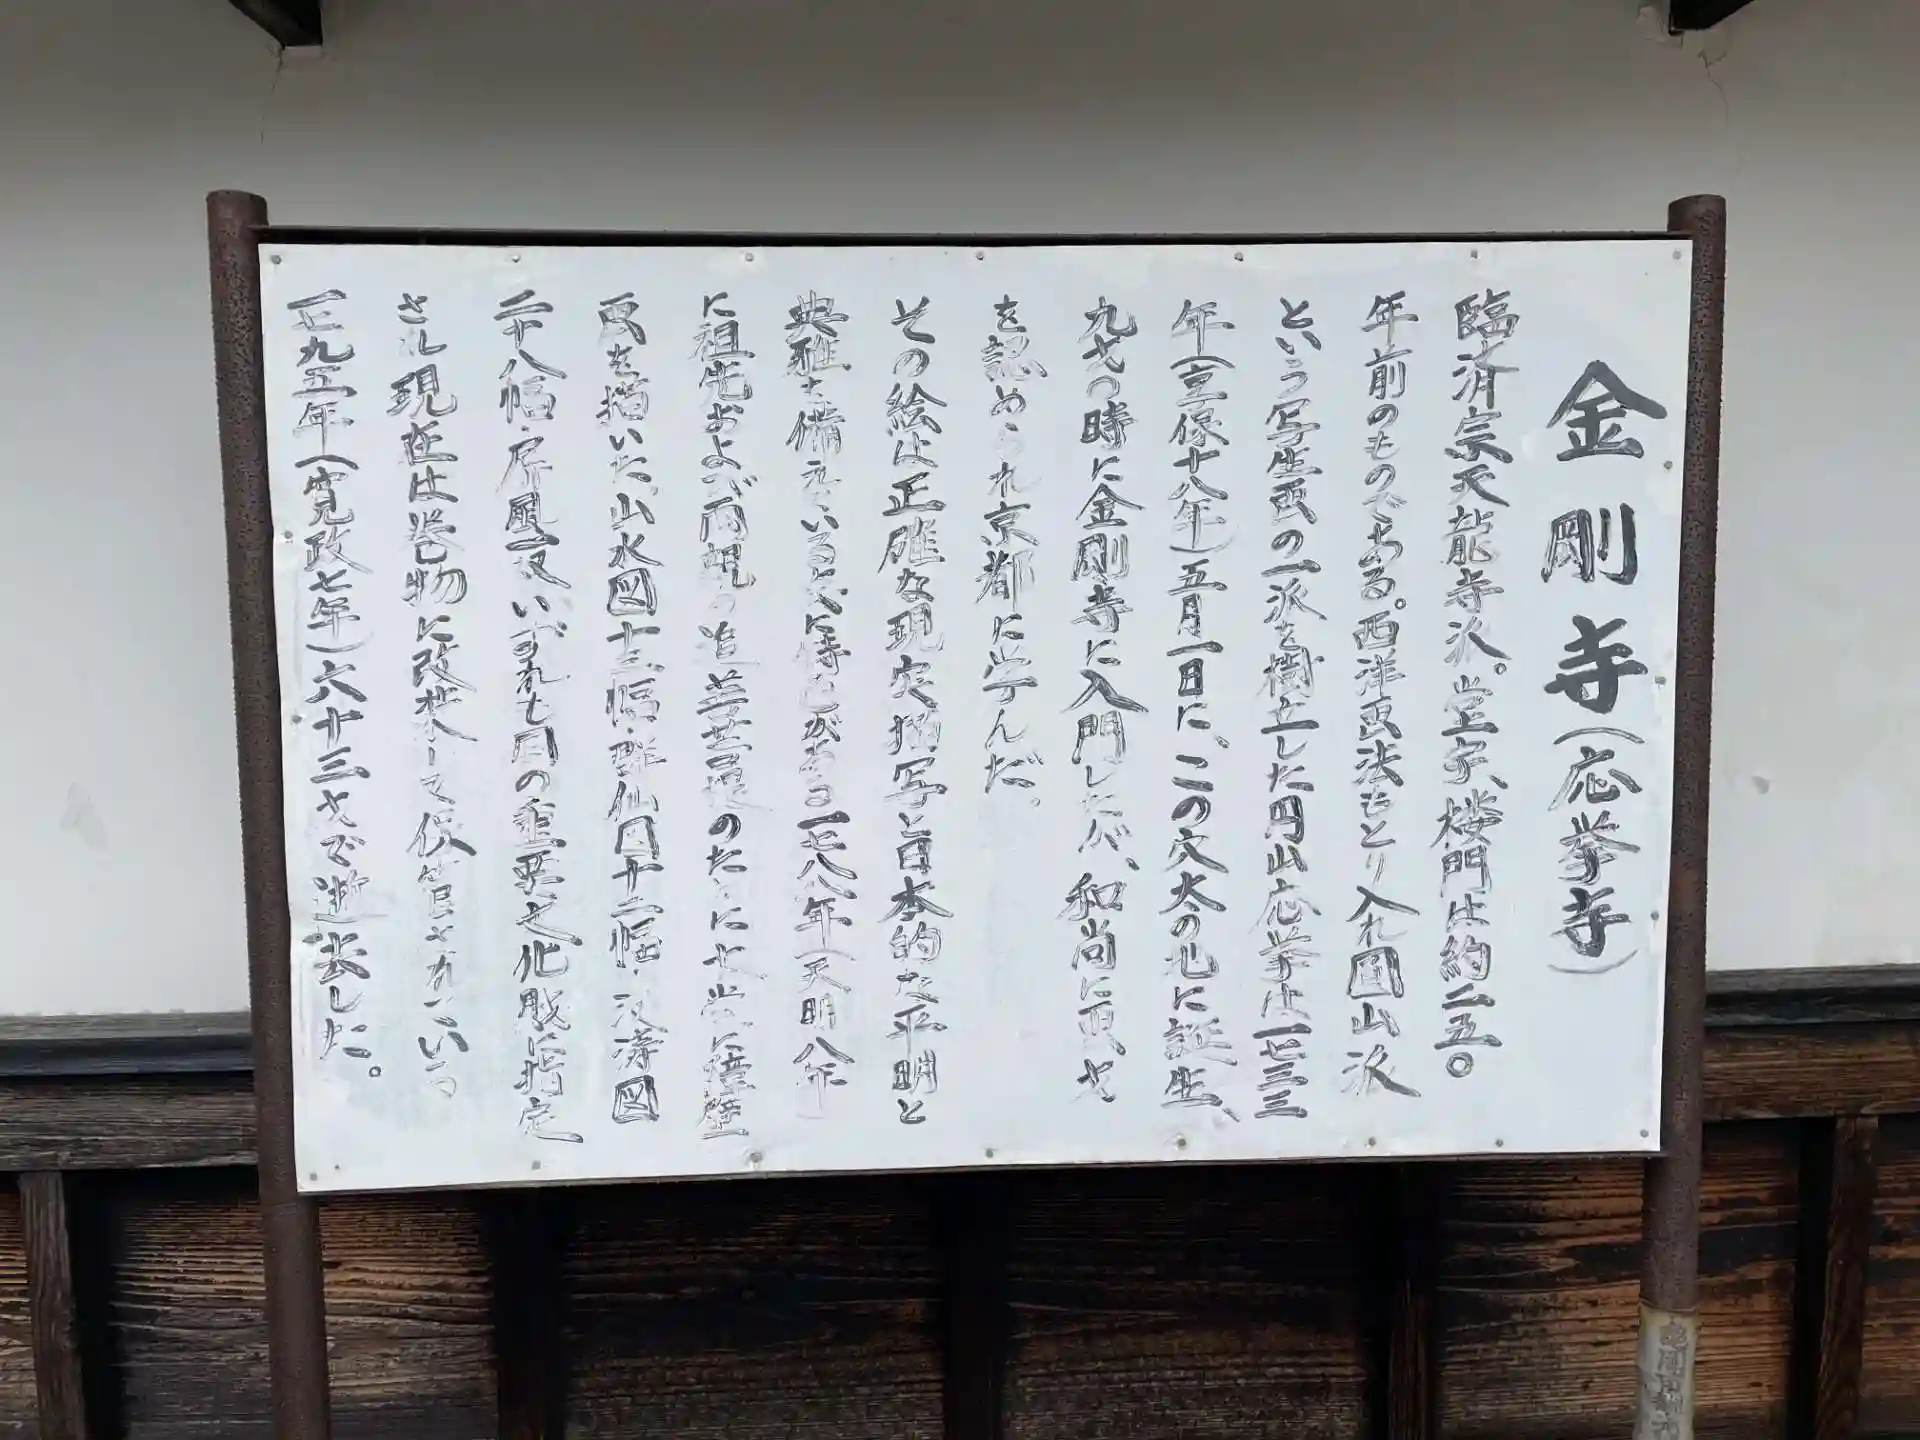 金剛寺(応挙寺)
臨済宗天龍寺派。堂宇、楼門は約二五〇
年前のものである。西洋画法もとり入れ圓山派
という写生画の一派を樹立した円山応挙は一七三三
年(享保十八年)五月一日に、この穴太の地に誕生、
九才の時に金剛寺に入門したが、和尚に画才
を認められ京都に学んだ。
その絵は正確な現実描写と日本的な平明と
典雅を備えている点に特色がある。一七八八年(天明八年)
に祖先および両親の追善菩提のために七当に障壁
画を描いた。山水図十三幅・群仙図十二幅・波涛図
二十八幅・屏風一双いずれも国の重要文化財に指定
され現在は巻物に改装して保管されている
一七九五年(寛政七年)六十三才で逝去した。